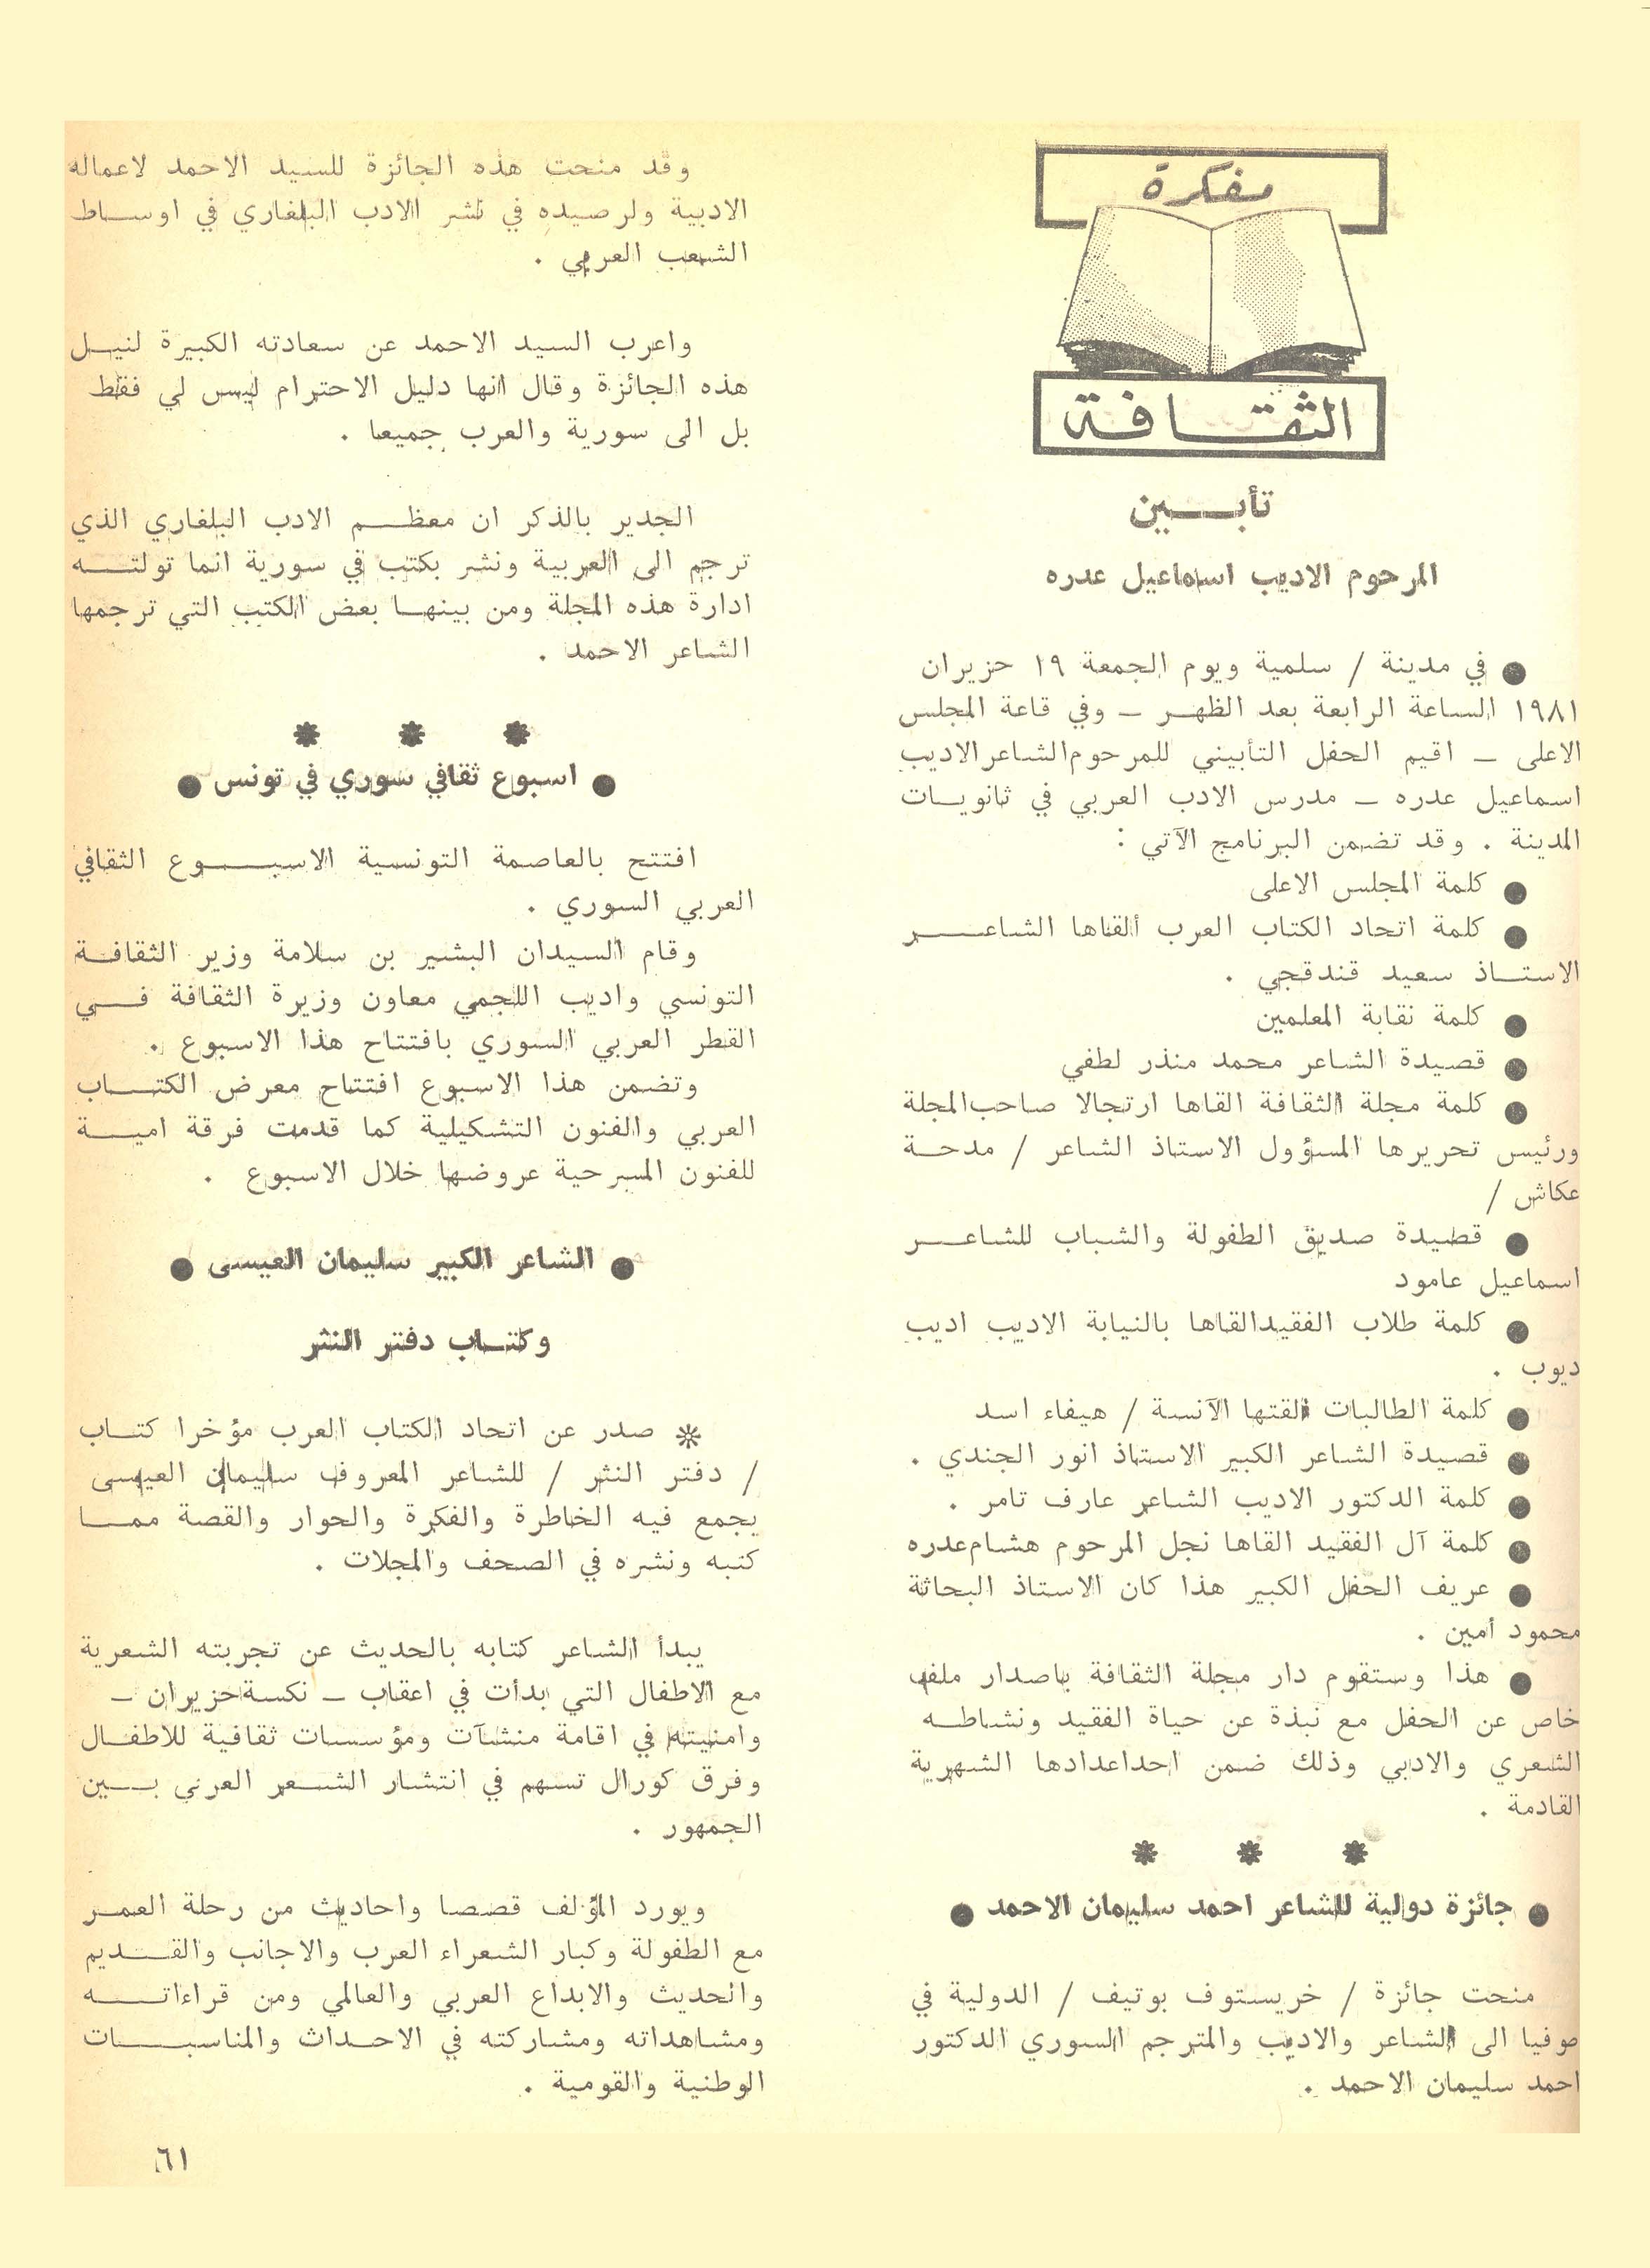 مفكرة
الثقافة
تأبــين
المرحوم الاديب اسماعيل عدره
● في مدينة / سلمية ويوم الجمعة ١٩ حزيران
١٩٨١ الساعة الرابعة بعد الظهر – وفي قاعة المجلس
الاعلى – اقيم الحفل التأبيني للمرحوم الشاعر الاديب
اسماعيل عدره – مدرس الادب العربي في ثانويات
المدينة . وقد تضمن البرنامج الآتي :
● كلمة المجلس الاعلى
● كلمة اتحاد الكتاب العرب ألقاها الشاعر
الاستاذ سعيد قندقجي .
● كلمة نقابة المعلمين
● قصيدة الشاعر محمد منذر لطفي
● كلمة مجلة الثقافة القاها ارتجالا صاحب المجلة
ورئيس تحريرها المسؤول الاستاذ الشاعر / مدحة
عكاش /
● قصيدة صديق الطفولة والشباب للشاعر
اسماعيل عامود
● كلمة طلاب الفقيد القاها بالنيابة الاديب اديب
ديوب .
● كلمة الطالبات القتها الآنسة / هيفاء اسد
● قصيدة الشاعر الكبير الاستاذ انور الجندي .
● كلمة الدكتور الاديب الشاعر عارف تامر .
● كلمة آل الفقيد القاها نجل المرحوم هشام عدره
● عريف الحفل الكبير هذا كان الاستاذ البحاثة
محمود أمين .
● هذا وستقوم دار مجلة الثقافة باصدار ملف
خاص عن الحفل مع نبذة عن حياة الفقيد ونشاطه
الشعري والادبي وذلك ضمن احد اعدادها الشهرية
القادمة .
* * *
● جائزة دولية للشاعر احمد سليمان الاحمد ●
منحت جائزة / خريستوف بوتيف / الدولية في
صوفيا الى الشاعر والاديب والمترجم السوري الدكتور
احمد سليمان الاحمد .
وقد منحت هذه الجائزة للسيد الاحمد لاعماله
الادبية ولرصيده في نشر الادب البلغاري في اوساط
الشعب العربي .
واعرب السيد الاحمد عن سعادته الكبيرة لنيل
هذه الجائزة وقال انها دليل الاحترام ليس لي فقط
بل الى سورية والعرب جميعا .
الجدير بالذكر ان معظم الادب البلغاري الذي
ترجم الى العربية ونشر بكتب في سورية انما تولته
ادارة هذه المجلة ومن بينها بعض الكتب التي ترجمها
الشاعر الاحمد .
* * *
● اسبوع ثقافي سوري في تونس ●
افتتح بالعاصمة التونسية الاسبوع الثقافي
العربي السوري .
وقام السيدان البشير بن سلامة وزير الثقافة
التونسي واديب اللجمي معاون وزيرة الثقافة في
القطر العربي السوري بافتتاح هذا الاسبوع .
وتضمن هذا الاسبوع افتتاح معرض الكتاب
العربي والفنون التشكيلية كما قدمت فرقة امية
للفنون المسرحية عروضها خلال الاسبوع .
● الشاعر الكبير سليمان العيسى ●
وكتاب دفتر النثر
* صدر عن اتحاد الكتاب العرب مؤخرا كتاب
/ دفتر النثر / للشاعر المعروف سليمان العيسى
يجمع فيه الخاطرة والفكرة والحوار والقصة مما
كتبه ونشره في الصحف والمجلات .
يبدأ الشاعر كتابه بالحديث عن تجربته الشعرية
مع الاطفال التي بدأت في اعقاب – نكسة حزيران –
وامنيته في اقامة منشآت ومؤسسات ثقافية للاطفال
وفرق كورال تسهم في انتشار الشعر العربي بين
الجمهور .
ويورد المؤلف قصصا واحاديث من رحلة العمر
مع الطفولة وكبار الشعراء العرب والاجانب والقديم
والحديث والابداع العربي والعالمي ومن قراءاته
ومشاهداته ومشاركته في الاحداث والمناسبات
الوطنية والقومية .
٦١